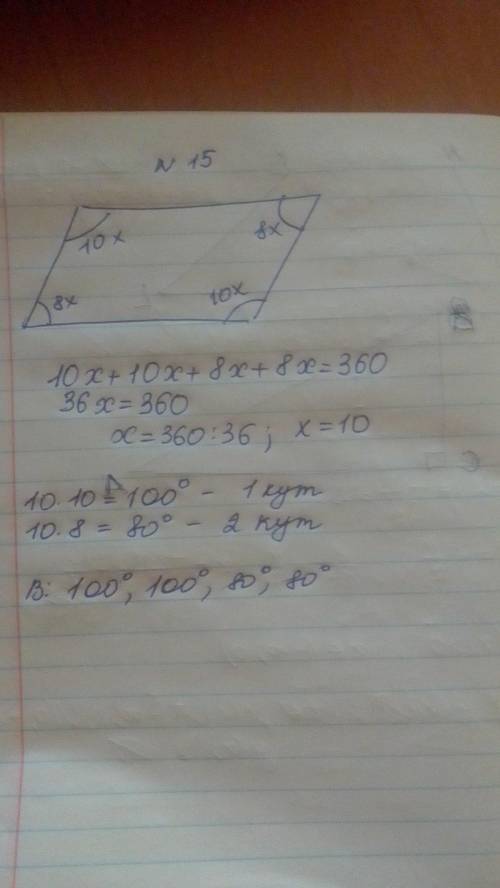 N 15
10x
8x
8x
10x
10x+10x+8x+8x=360
36x=360
x=360:36; x=10
10·10=100° - 1 кут
10·8=80° - 2 кут
В: 100°, 100°, 80°, 80°